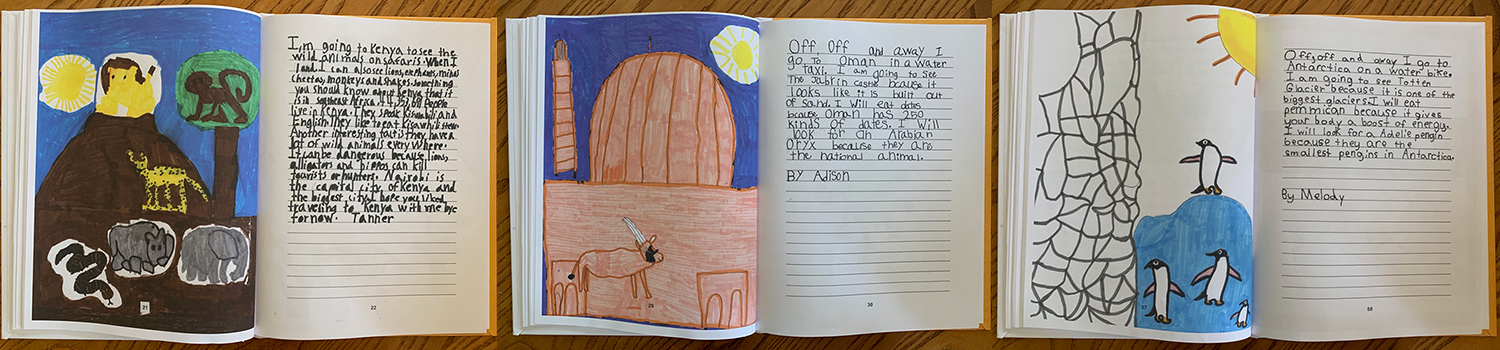 I,m going to Kenya to see the
wild animals on safaris. When I
land, I can also see lions, elephants, rhinos
cheetas, monkeys and snakes. Something
you should know about Kenya that it
is in southeast Africa.
live in Kenya. They speak Kiswahili and
English. They like to eat Kisra while stew.
Another interesting fact is they have a
lot of wild animals every where.
It can be dangerous because lions,
alligators and hippos can kill
tourists or hunters. Nairobi is
the capital city of Kenya and
the biggest city. I hope you liked
traveling to Kenya with me bye
for now. Tanner
21
22
Off, Off and away I
go. To Oman in a water
taxi. I am going to see
The Jabrin castle because it
looks like it is built out
of sand. I will eat dates
because Oman has 250
kinds of dates. I will
look for an Arabian
Oryx because they are
the national animal.
BY Adison
29
30
Off, off and away I go to
Antarctica on a water bike.
I am going to see Totten
Glacier because it is one of the
biggest glaciers. I will eat
pemmican because it gives
your body a boost of energy.
I will look for a Adelie pengin
because they are the
smallest pengins in Antarctica.
By Melody
57
58